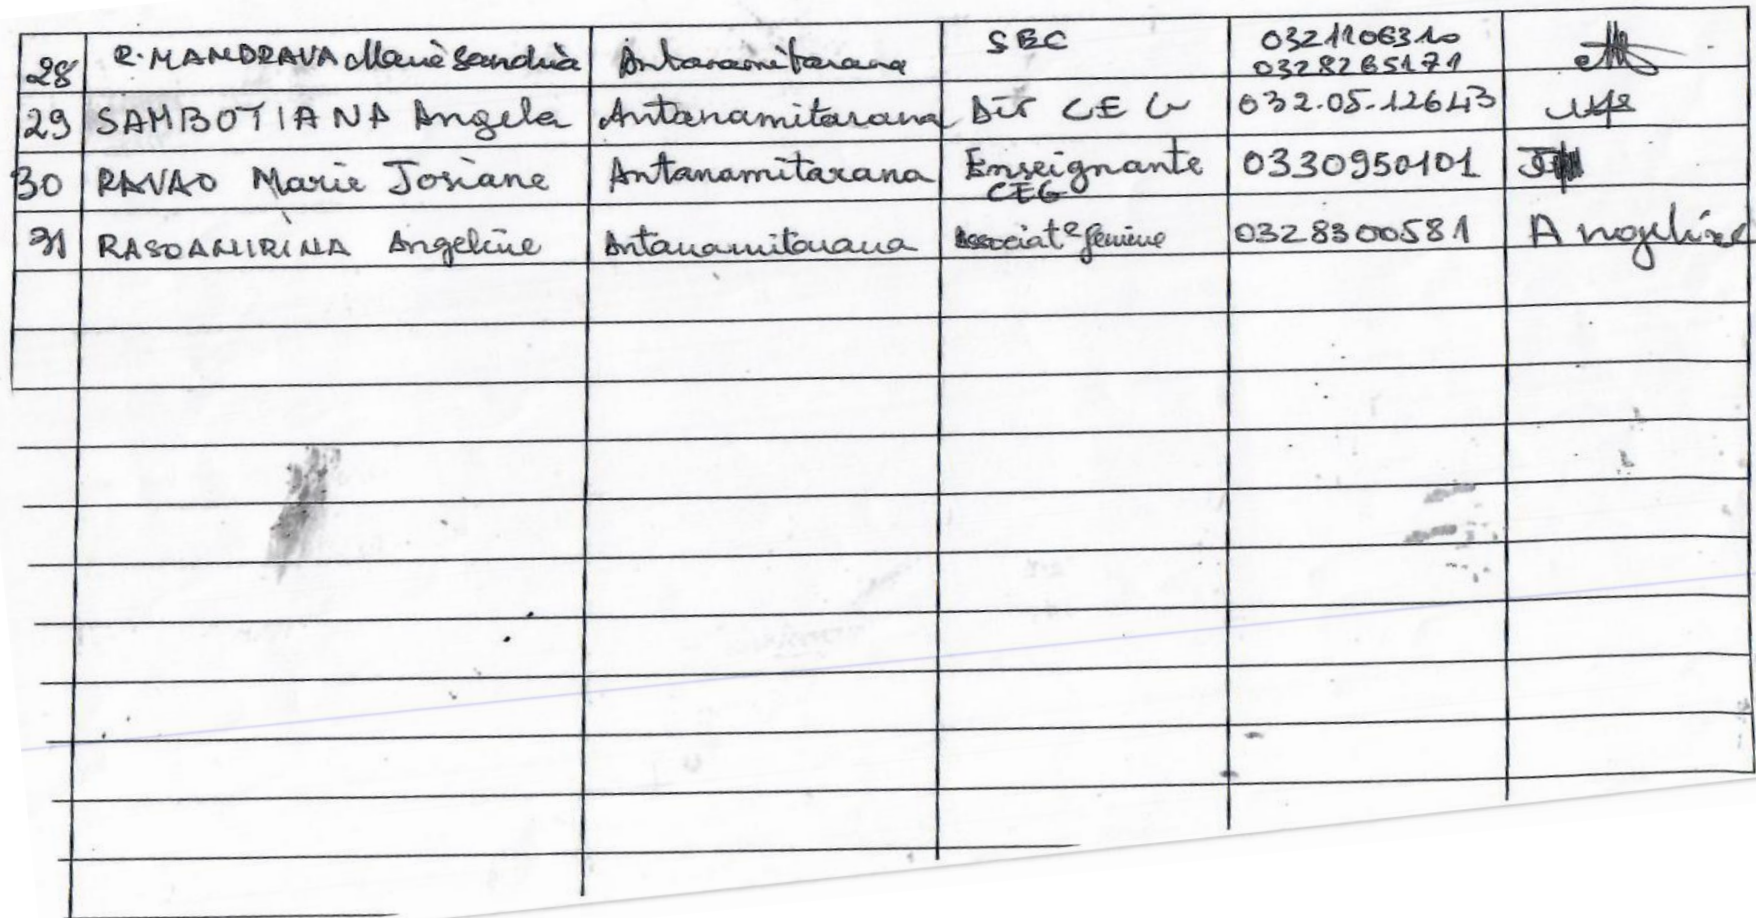 28 R. MANDRAVA Marie Sandria Antanamitarana SEC 0321106310
0328265171
29 SAMBOTIANA Angela Antanamitarana Dir CEG 032.05.12643
30 RAVAO Marie Josiane Antanamitarana Enseignante 0330950101
CEG
31 RASOANIRINA Angeline Antanamitarana Associat° femine 0328300581 Angeline